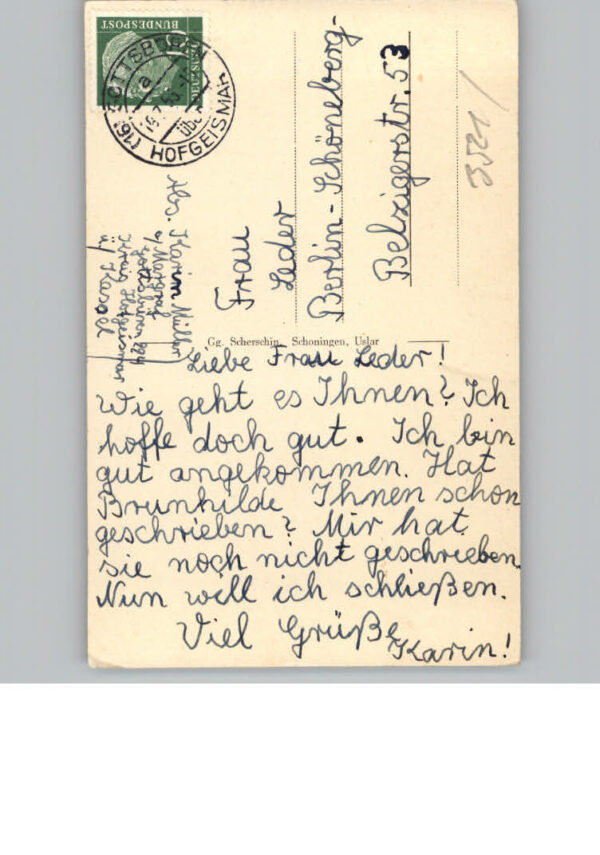 BUNDESPOST
10
(16) GOTTSBÜREN
a
HOFGEISMAR
3521/
Frau
Leder
Berlin-Schöneberg-
Belzigerstr. 53
Abs. Karin Müller
b/ Margraf
Gottsbüren
Kreis Hofgeismar
ü/ Kassel
Gg. Scherschin, Schoningen, Uslar
Liebe Frau Leder!
Wie geht es Ihnen? Ich
hoffe doch gut. Ich bin
gut angekommen. Hat
Brunhilde Ihnen schon
geschrieben? Mir hat
sie noch nicht geschrieben.
Nun will ich schließen.
Viel Grüße
Karin!